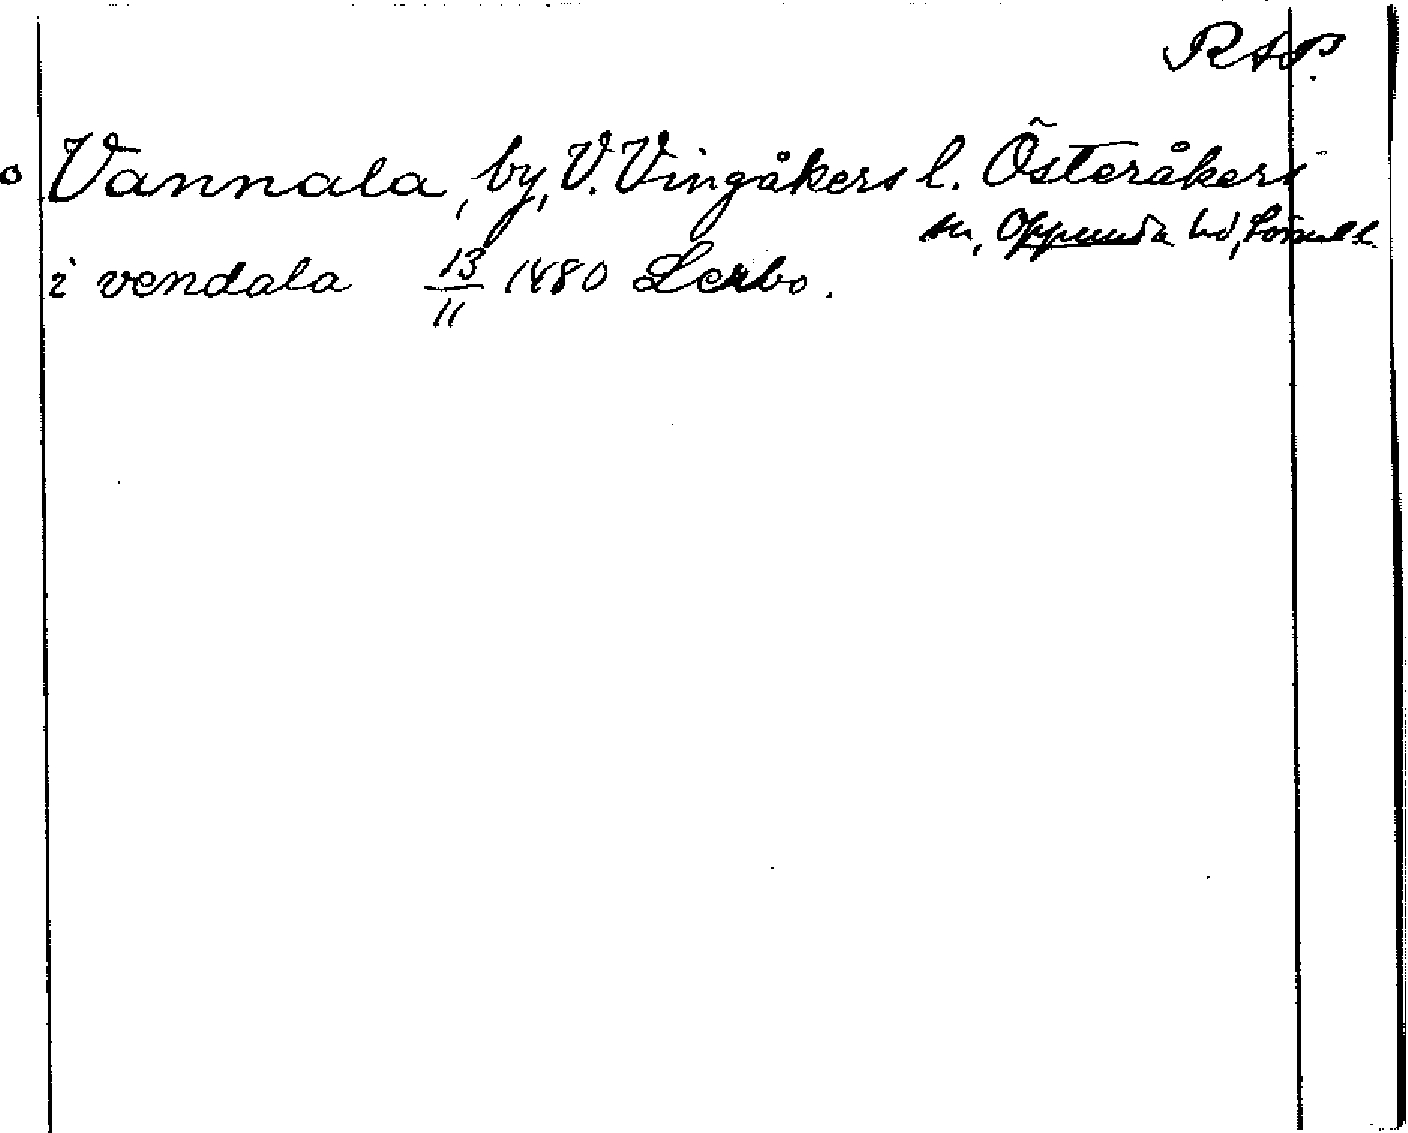 RAP.
o Vannala, by, V. Vingåkers l. Österåkers
sn, Oppunda hd,
i vendala 13/11 1480 Lerbo.